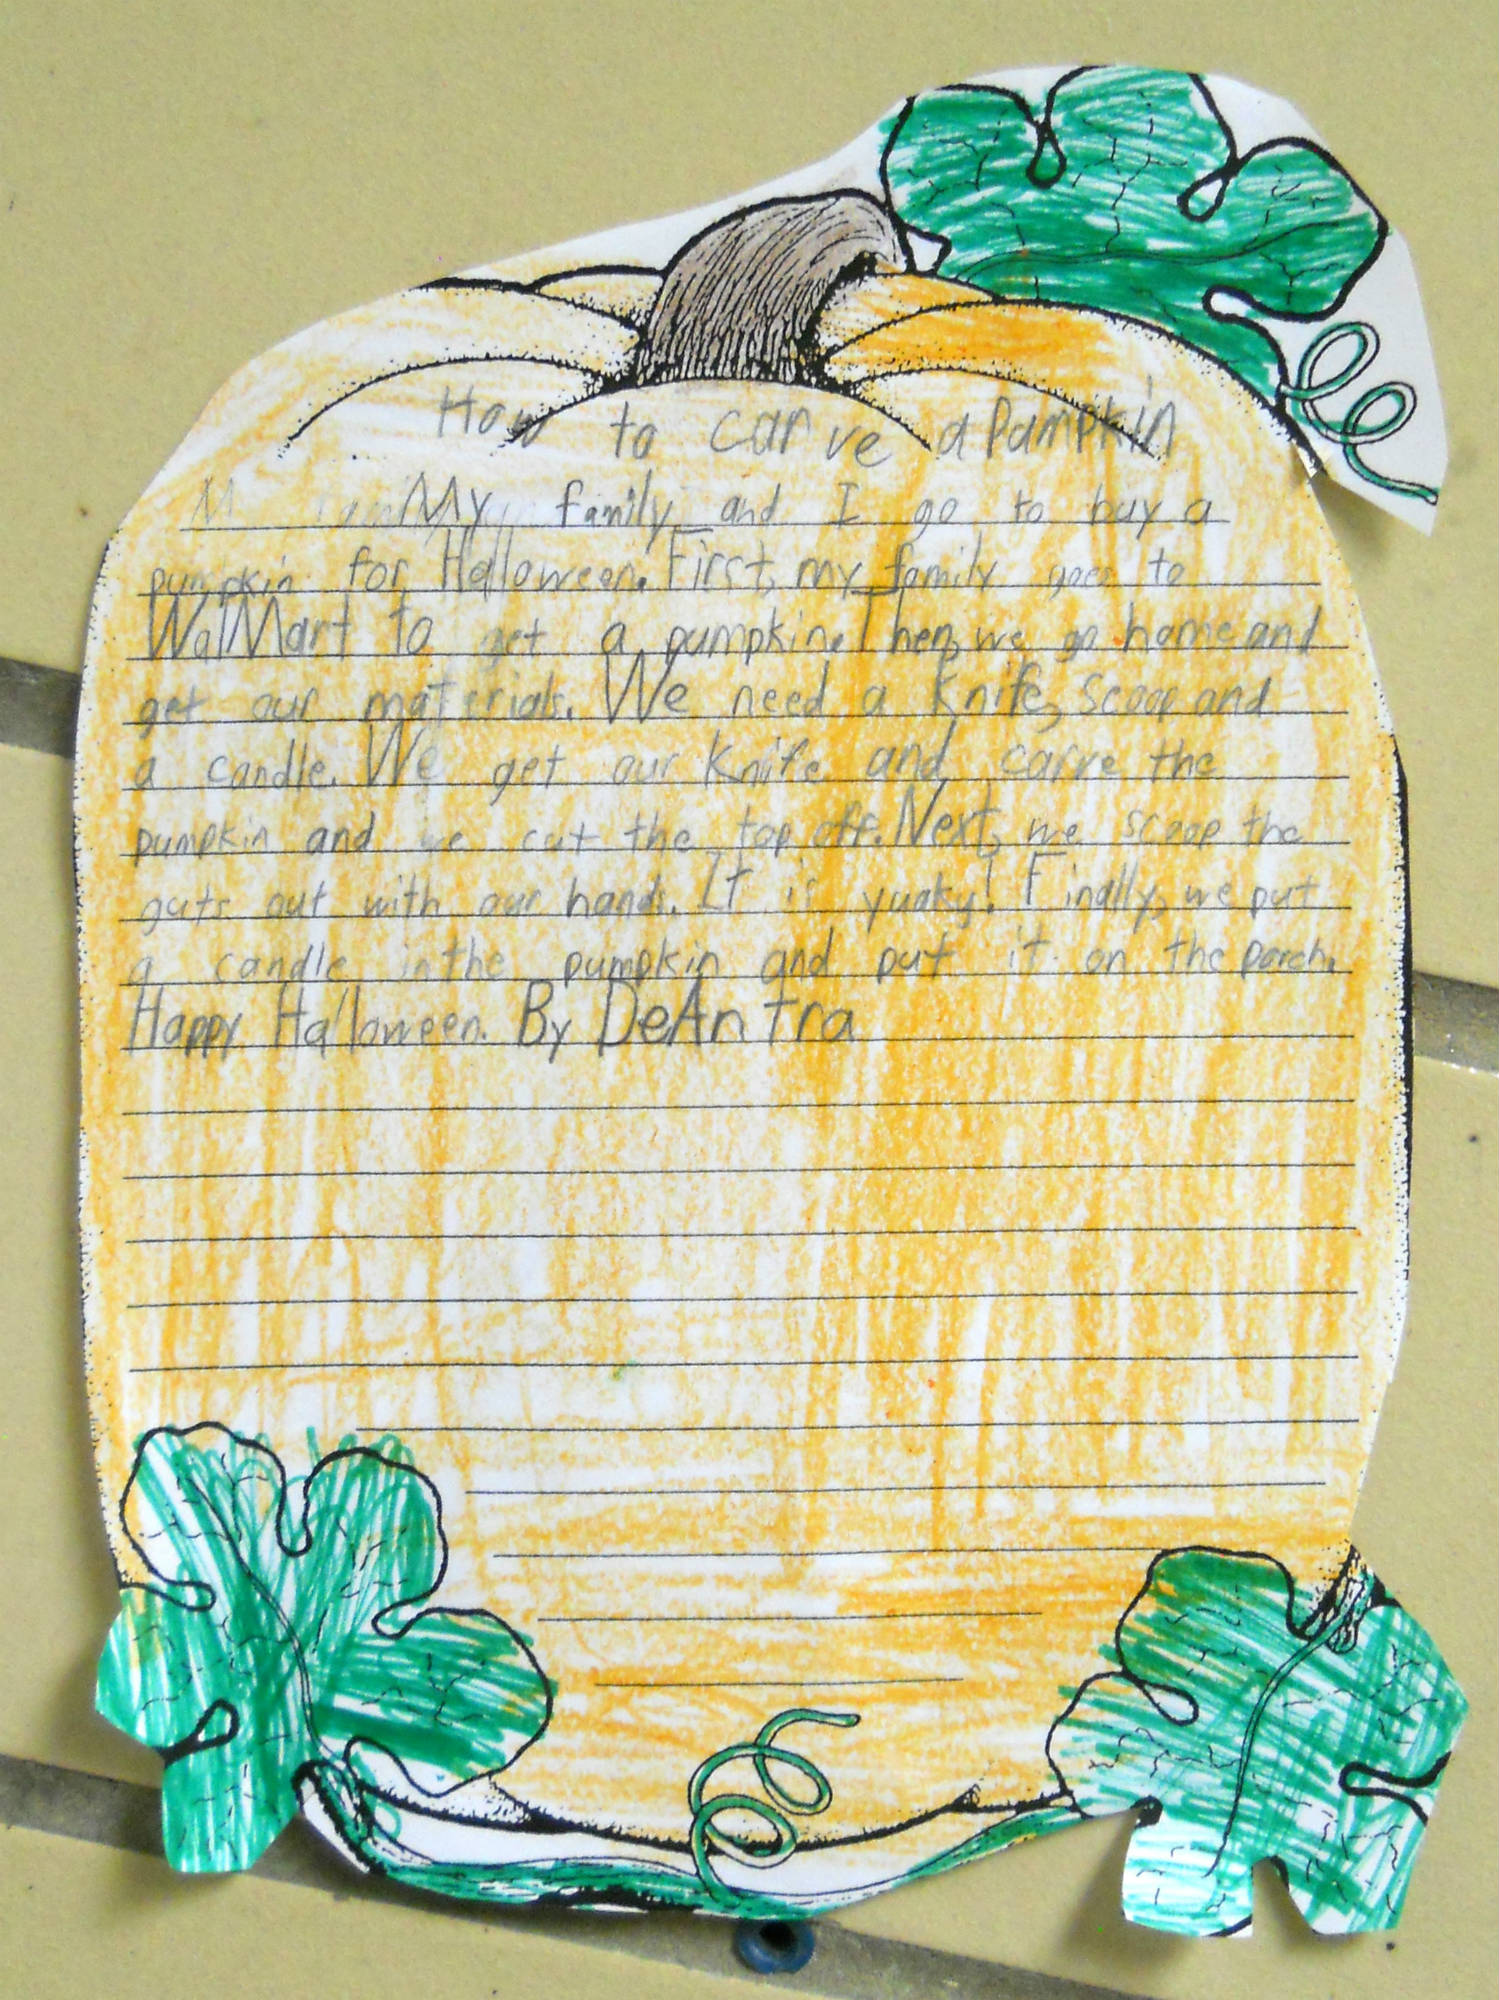 How to carve a Pumpkin
My family and I go to buy a
pumpkin for Halloween. First, my family goes to
WalMart to get a pumpkin. Then, we go home and
get our materials. We need a knife, scoop and
a candle. We get our knife and carve the
pumpkin and we cut the top off. Next, we scoop the
guts out with our hands. It is yucky! Finally, we put
a candle in the pumpkin and put it on the porch.
Happy Halloween. By DeAntra